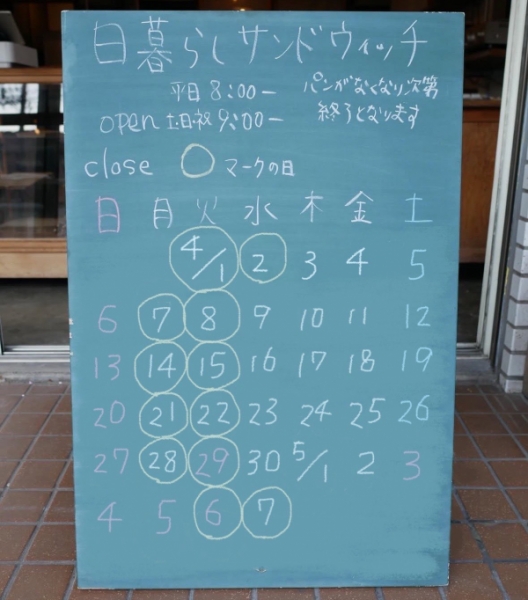 日暮らしサンドウィッチ
平日 8:00ー
open 土・日・祝 9:00ー
パンがなくなり次第
終了となります
close ○ マークの日
日 月 火 水 木 金 土
4/1 2 3 4 5
6 7 8 9 10 11 12
13 14 15 16 17 18 19
20 21 22 23 24 25 26
27 28 29 30 5/1 2 3
4 5 6 7